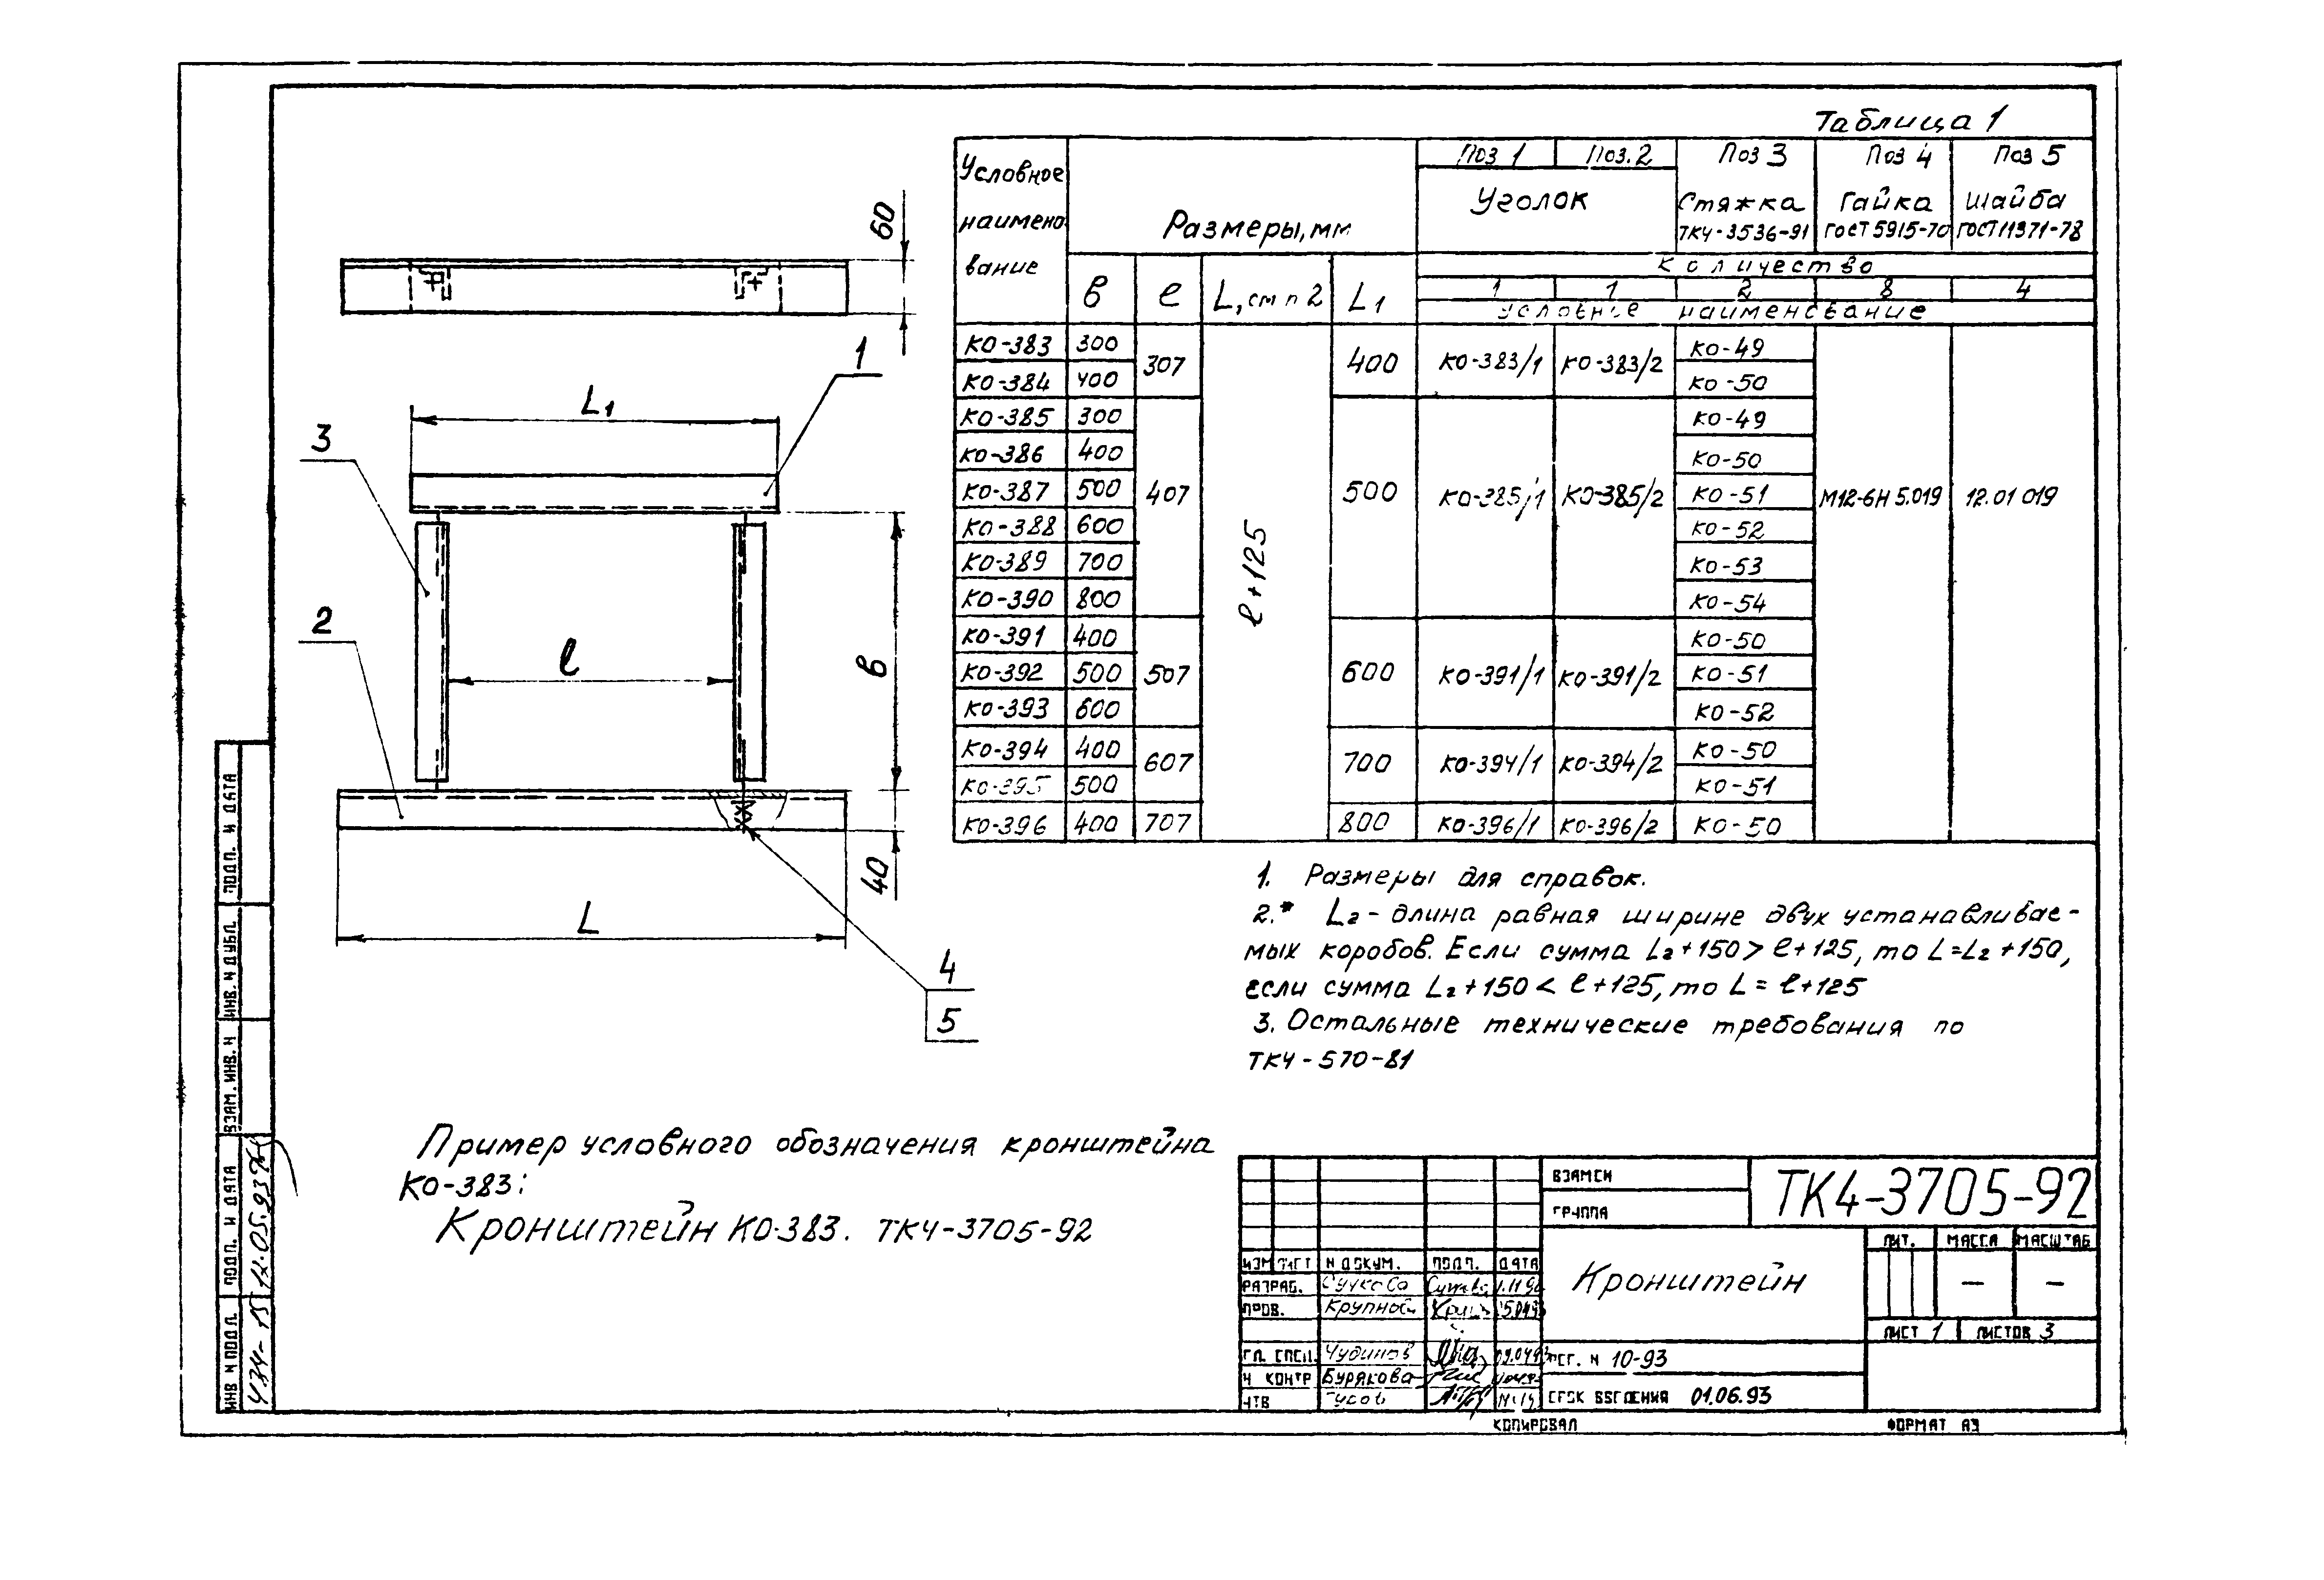 Таблица 1
Условное наимено вание
Размеры, мм
Поз 1 Поз. 2 Поз 3 Поз 4 Поз 5
Уголок
Стяжка ТК4-3536-91
Гайка ГОСТ 5915-70
Шайба ГОСТ 11371-78
в е L, см п 2 L1
количество
1 1 2 8 4
условное наименование
КО-383 300 307 ℓ+125 400 КО-383/1 КО-383/2 КО-49 М12-6Н 5.019 12.01 019
КО-384 400 КО-50
КО-385 300 407 500 КО-385/1 КО-385/2 КО-49
КО-386 400 КО-50
КО-387 500 КО-51
КО-388 600 КО-52
КО-389 700 КО-53
КО-390 800 КО-54
КО-391 400 507 600 КО-391/1 КО-391/2 КО-50
КО-392 500 КО-51
КО-393 600 КО-52
КО-394 400 607 700 КО-394/1 КО-394/2 КО-50
КО-395 500 КО-51
КО-396 400 707 800 КО-396/1 КО-396/2 КО-50
60
1
L1
3
2
ℓ
в
40
L
4
5
1. Размеры для справок.
2.* L2 - длина равная ширине двух устанавливае-
мых коробов. Если сумма L2+150 > ℓ+125, то L=L2+150,
если сумма L2+150 < ℓ+125, то L= ℓ+125
3. Остальные технические требования по
ТК4-570-81
Пример условного обозначения кронштейна
КО-383:
Кронштейн КО-383. ТК4-3705-92
ПОДП. И ДАТА
ИНВ. N ДУБЛ.
ВЗАМ. ИНВ. N
ПОДП. И ДАТА
ИНВ N ПОДЛ.
ВЗАМЕН
ГРУППА
ТК4-3705-92
Кронштейн
ЛИТ. МАССА МАСШТАБ
– –
ЛИСТ 1 ЛИСТОВ 3
ИЗМ ЛИСТ N ДОКУМ. ПОДП. ДАТА
РАЗРАБ.
ПРОВ.
ГЛ. СПЕЦ. Чудинов
Н КОНТР Бурякова
УТВ Гусов
РЕГ. N 10-93
СРОК ВВЕДЕНИЯ 01.06.93
КОПИРОВАЛ ФОРМАТ А3